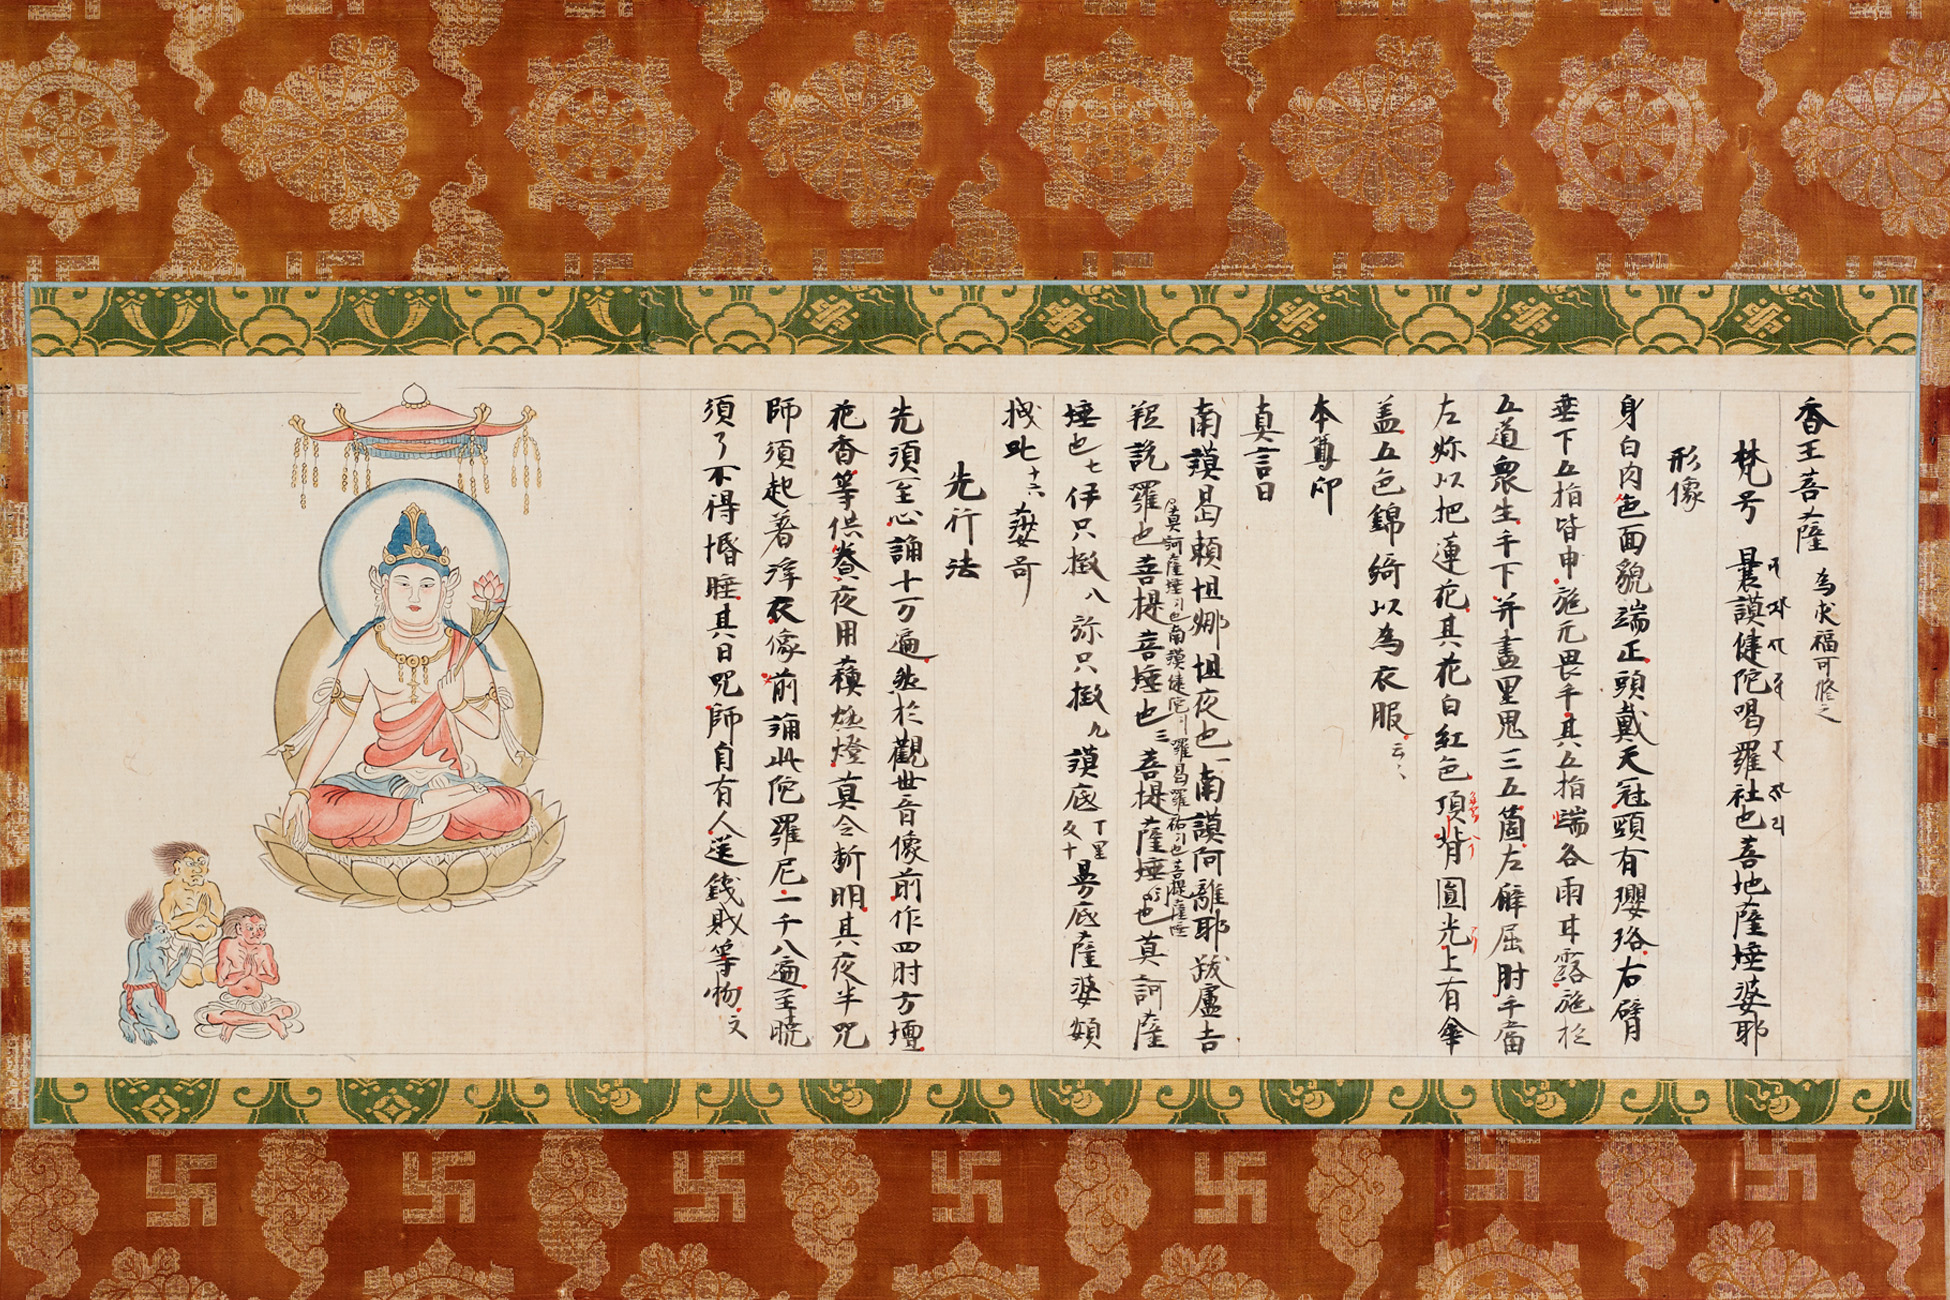 香王菩薩 為求福可修之
梵号 曩謨健陀喝羅社也菩地薩埵婆耶
形像
身白肉色面貌端正頭戴天冠頸有瓔珞右臂
垂下五指皆申施无畏手其五指端各雨甘露施於
五道衆生手下并畫黒鬼三五箇左僻屈肘手當
左妳以把蓮花其花白紅色頂背圓光上有傘
盖五色錦綺以為衣服云々
本尊印
真言曰
南謨曷頼怛娜怛夜也一南謨阿離耶跋盧吉
羝說羅也菩提菩埵也三菩提薩埵也莫訶薩
埵也七伊只撤八弥只撤九謨底
先行法
先須至心誦十万遍然於觀世音像前作四肘方壇
花香等供養夜用蘓燃燈真令断明其夜半咒
師須起著浄衣像前誦此陀羅尼一千八遍至暁
須了不得惛睡其日咒師自有人送錢財等物文